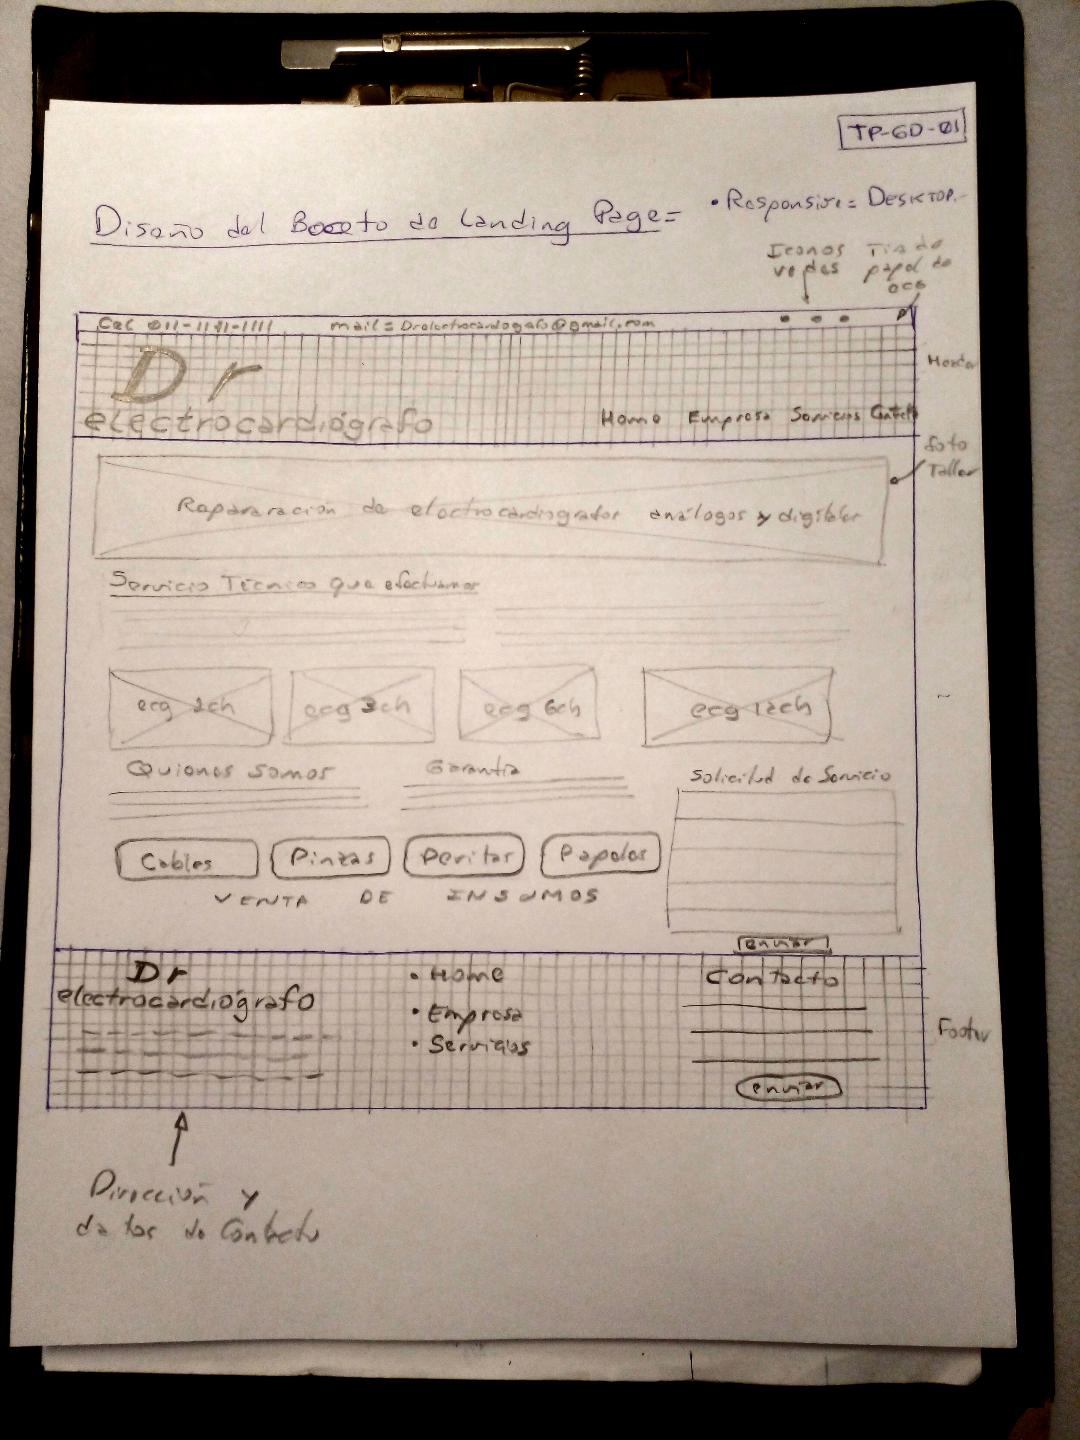 TP-GD-01
Diseño del Boceto de Landing Page=
• Responsive = DESKTOP.-
Iconos verdes
Tira de papel de ecg
Cel 011-1181-1111 mail = Drelectrocardiografo@gmail.com
Header
Dr
electrocardiógrafo
Home Empresa Servicios Contacto
foto Taller
Reparación de electrocardiografos análogos y digitales
Servicio Técnico que efectuamos
ecg 1ch ecg 3ch ecg 6ch ecg 12ch
Quienes Somos Garantía Solicitud de Servicio
Cables Pinzas Peritas Papeles
VENTA DE INSUMOS
enviar
Dr
electrocardiógrafo
• Home
• Empresa
• Servicios
Contacto
enviar
Footer
Dirección y
datos de Contacto